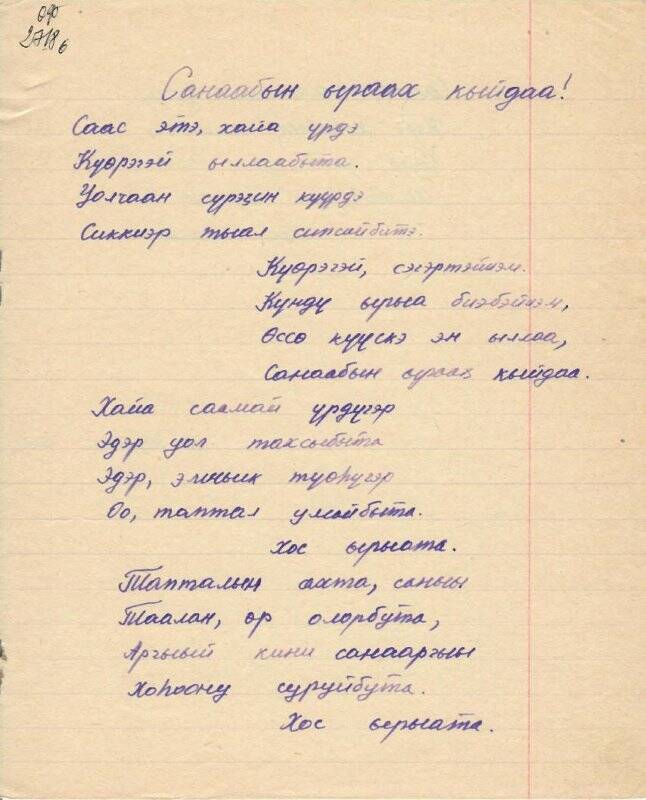 ОФ
2718 б
Санаабын ыраах кыйдаа!
Саас этэ, хайа үрдэ
Күөрэгэй ыллаабыта.
Уолчаан сүрэҕин күүрдэ
Сиккиэр тыал сипсийбитэ.
Күөрэгэй, сэгэртэйиэм.
Күндү ырыа биэбэйиэм,
Өссө күүскэ эн ыллаа,
Санаабын ыраах кыйдаа.
Хайа саамай үрдүгэр
Эдэр уол тахсыбыта
Эдэр, эмньик түөһүгэр
Оо, таптал умайбыта.
Хос ырыата.
Тапталын ахта, саныы
Таалан, өр олорбута,
Аргыый кини санааргыы
Хоһоону суруйбута.
Хос ырыата.